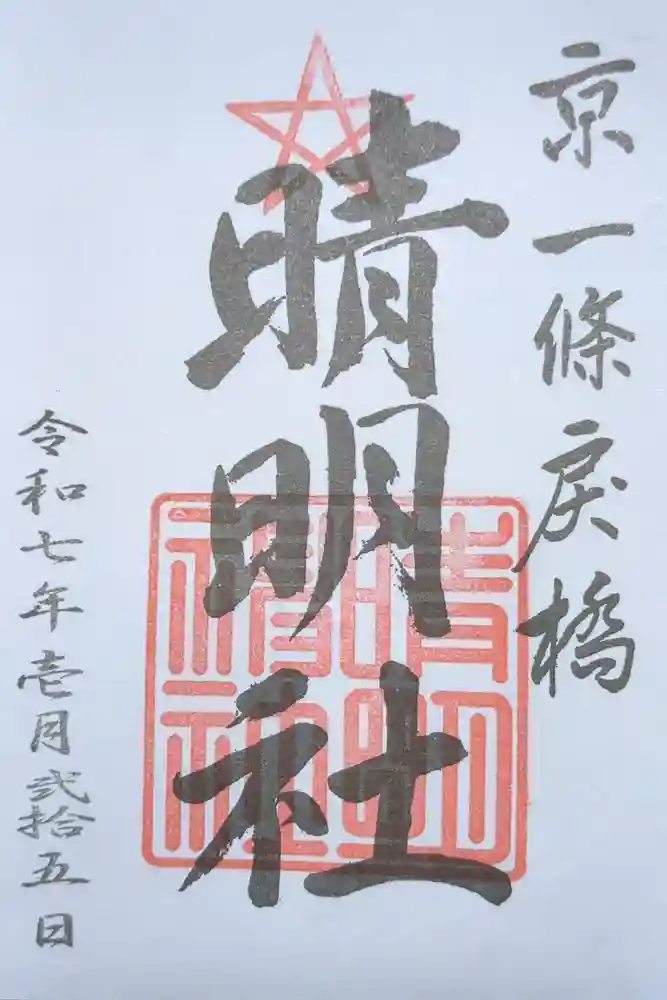 京一條戻橋
晴明社
令和七年壱月弐拾五日